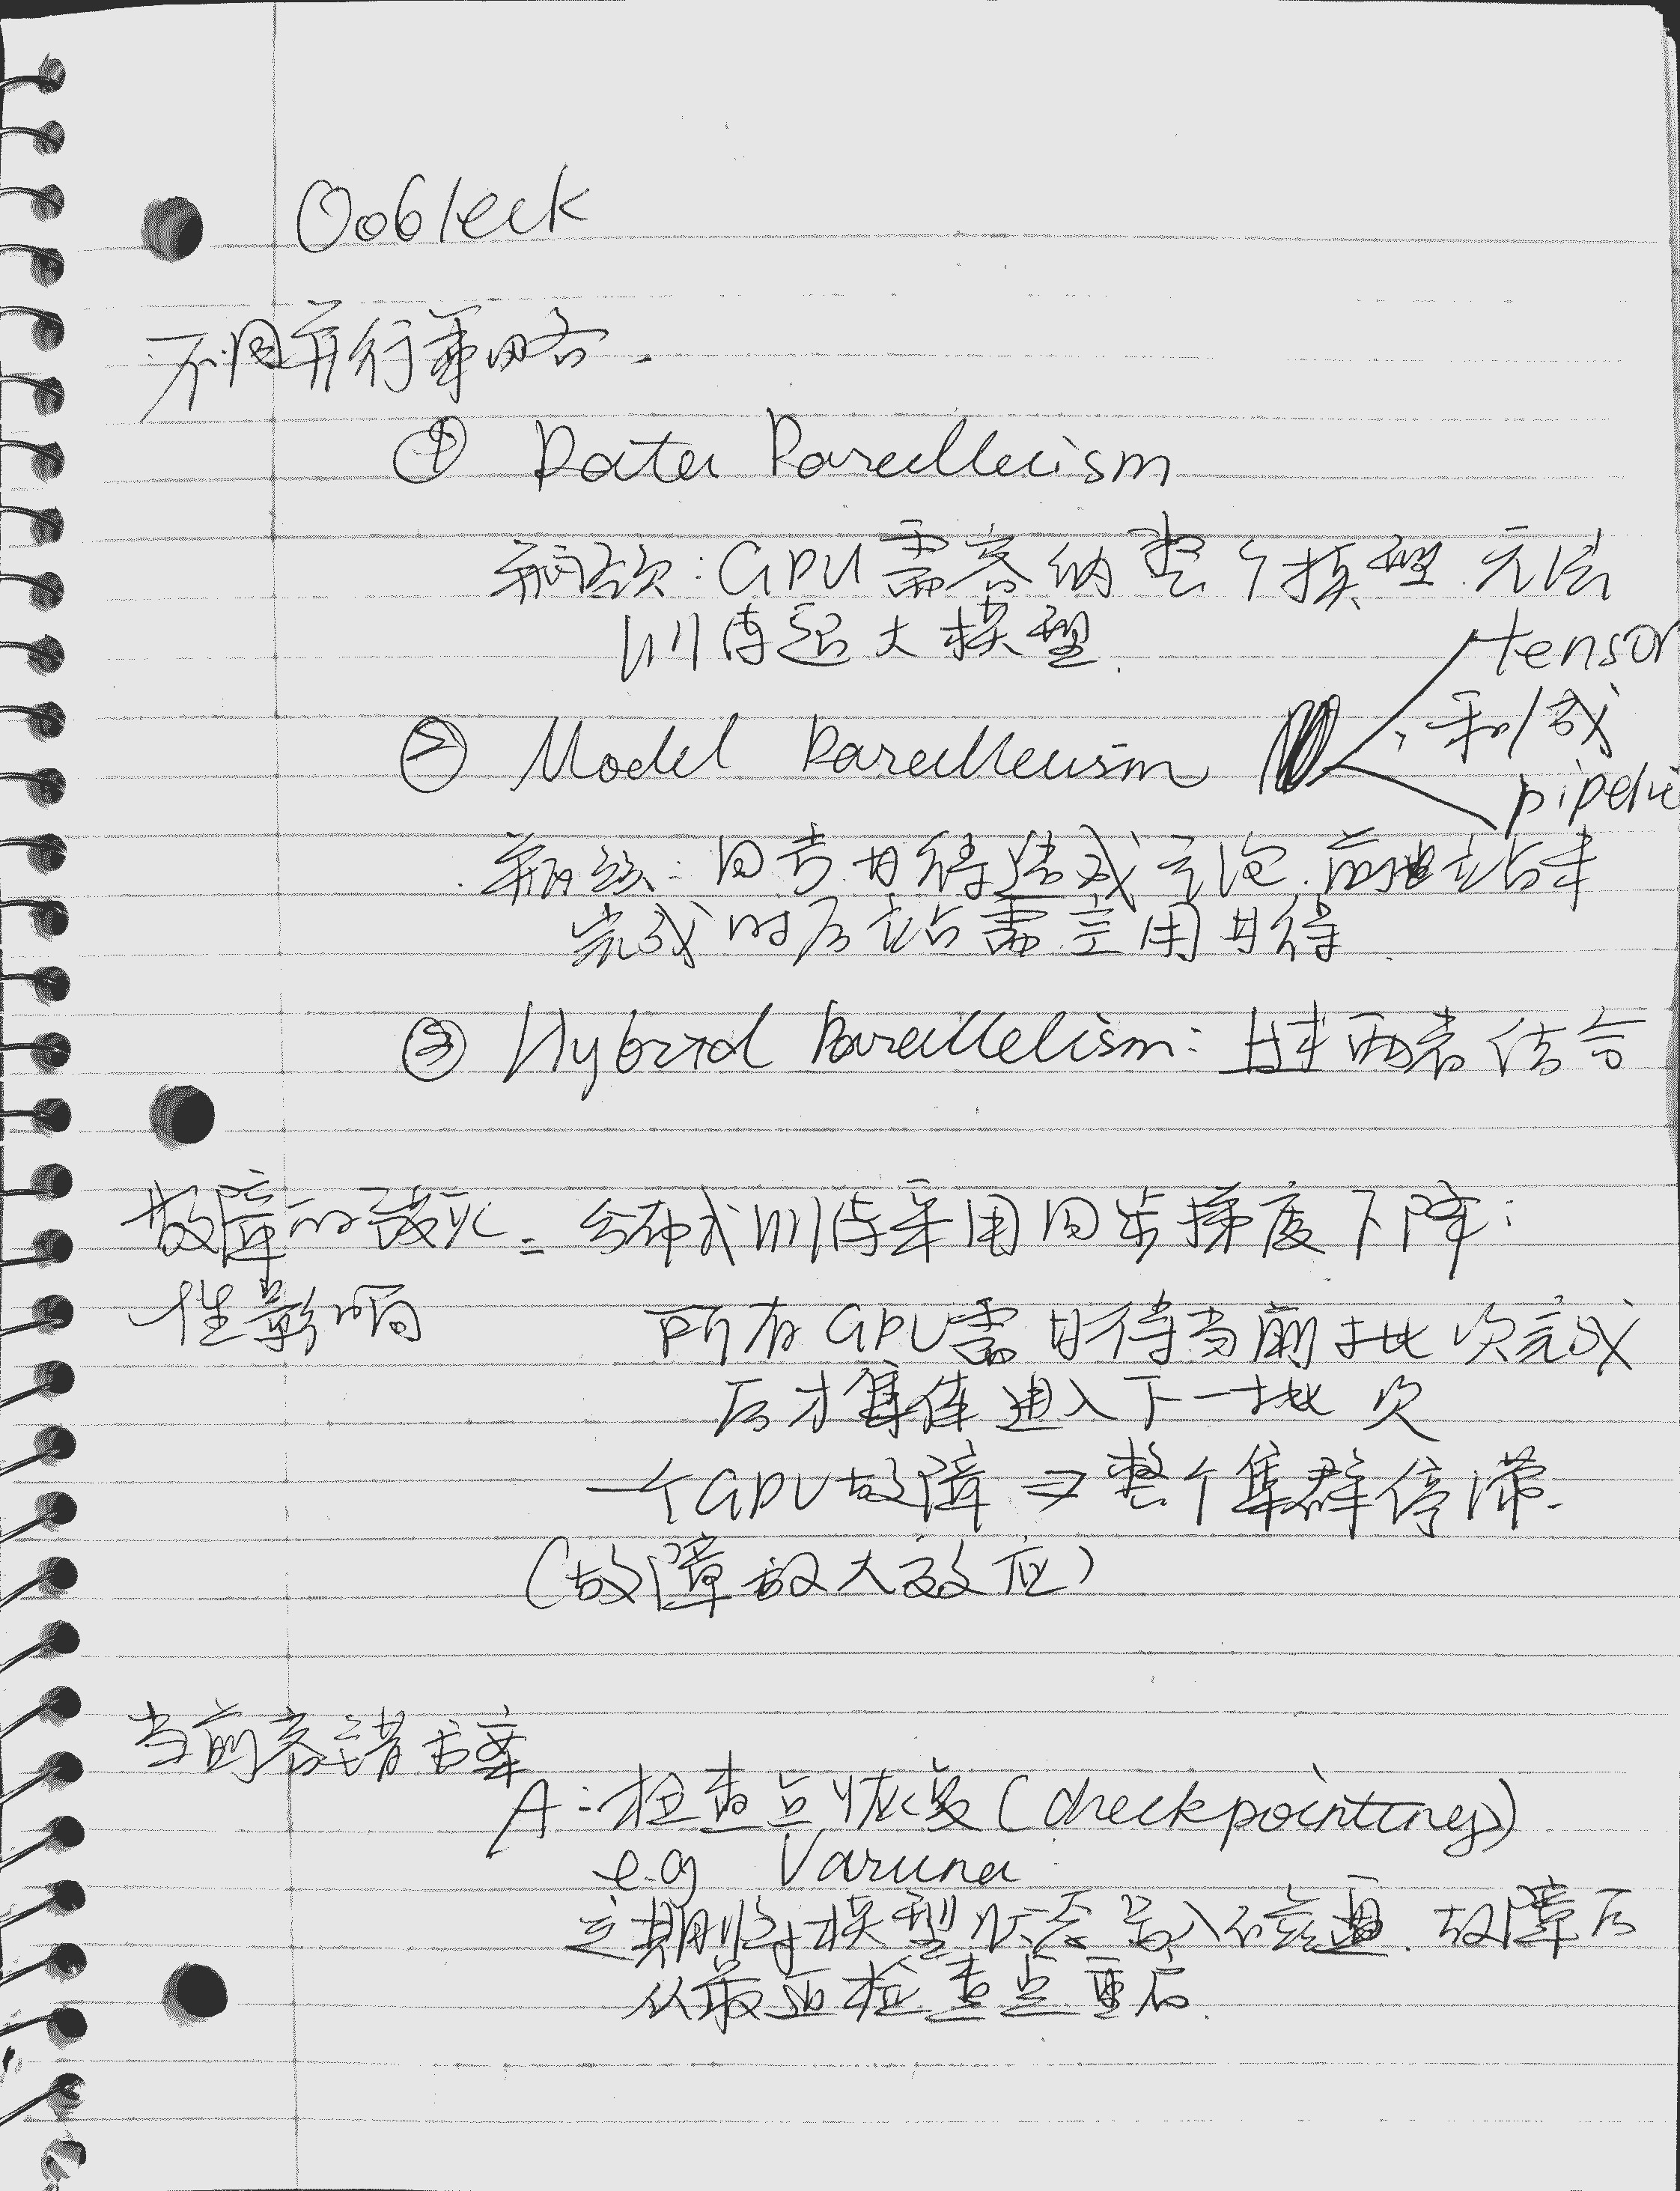 Oobleck
不同并行策略.
① Data Parallelism
瓶颈: GPU需容纳整个模型. 无法
训练超大模型.
② Model Parallelism
tensor
和/或
pipeli
瓶颈: 同步等待造成气泡. 前驱站未
完成时后站需空闲等待.
③ Hybrid Parallelism: 上述两者结合
故障的毁灭
性影响
: 分布式训练采用同步梯度下降:
所有GPU需等待当前批次完成
后才集体进入下一批次
一个GPU故障 ⇒ 整个集群停滞.
(故障放大效应)
当前容错方案
A: 检查点恢复 (checkpointing)
e.g Varuna
定期将模型状态写入磁盘. 故障后
从最近检查点重启.